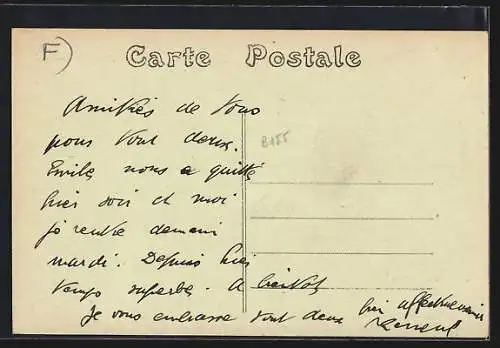 F)
Carte Postale
Amitiés de tous
pour vous deux.
Emile nous a quitté
hier soir et moi
je rentre demain
mardi. Depuis hier
temps superbe. A bientôt
Je vous embrasse tout deux bien affectueusement